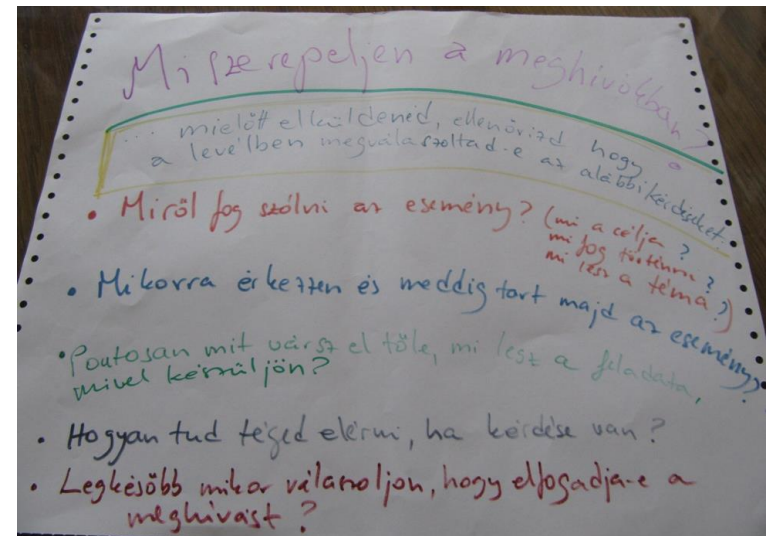 Mi szerepeljen a meghívóban?
... mielőtt elküldenéd, ellenőrizd hogy
a levélben megválaszoltad-e az alábbi kérdéseket.
• Miről fog szólni az esemény? (mi a célja?
mi fog történni?
mi lesz a téma?)
• Mikorra érkezzen és meddig tart majd az esemény?
• Pontosan mit vársz el tőle, mi lesz a feladata,
mivel készüljön?
• Hogyan tud téged elérni, ha kérdése van?
• Legkésőbb mikor válaszoljon, hogy elfogadja-e a
meghívást?